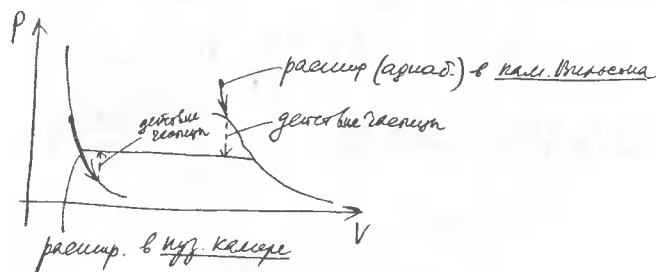 P
расшир (адиаб.) в кам. Вильсона
действие
частицы
действие частицы
расшир. в пуз. камере
V